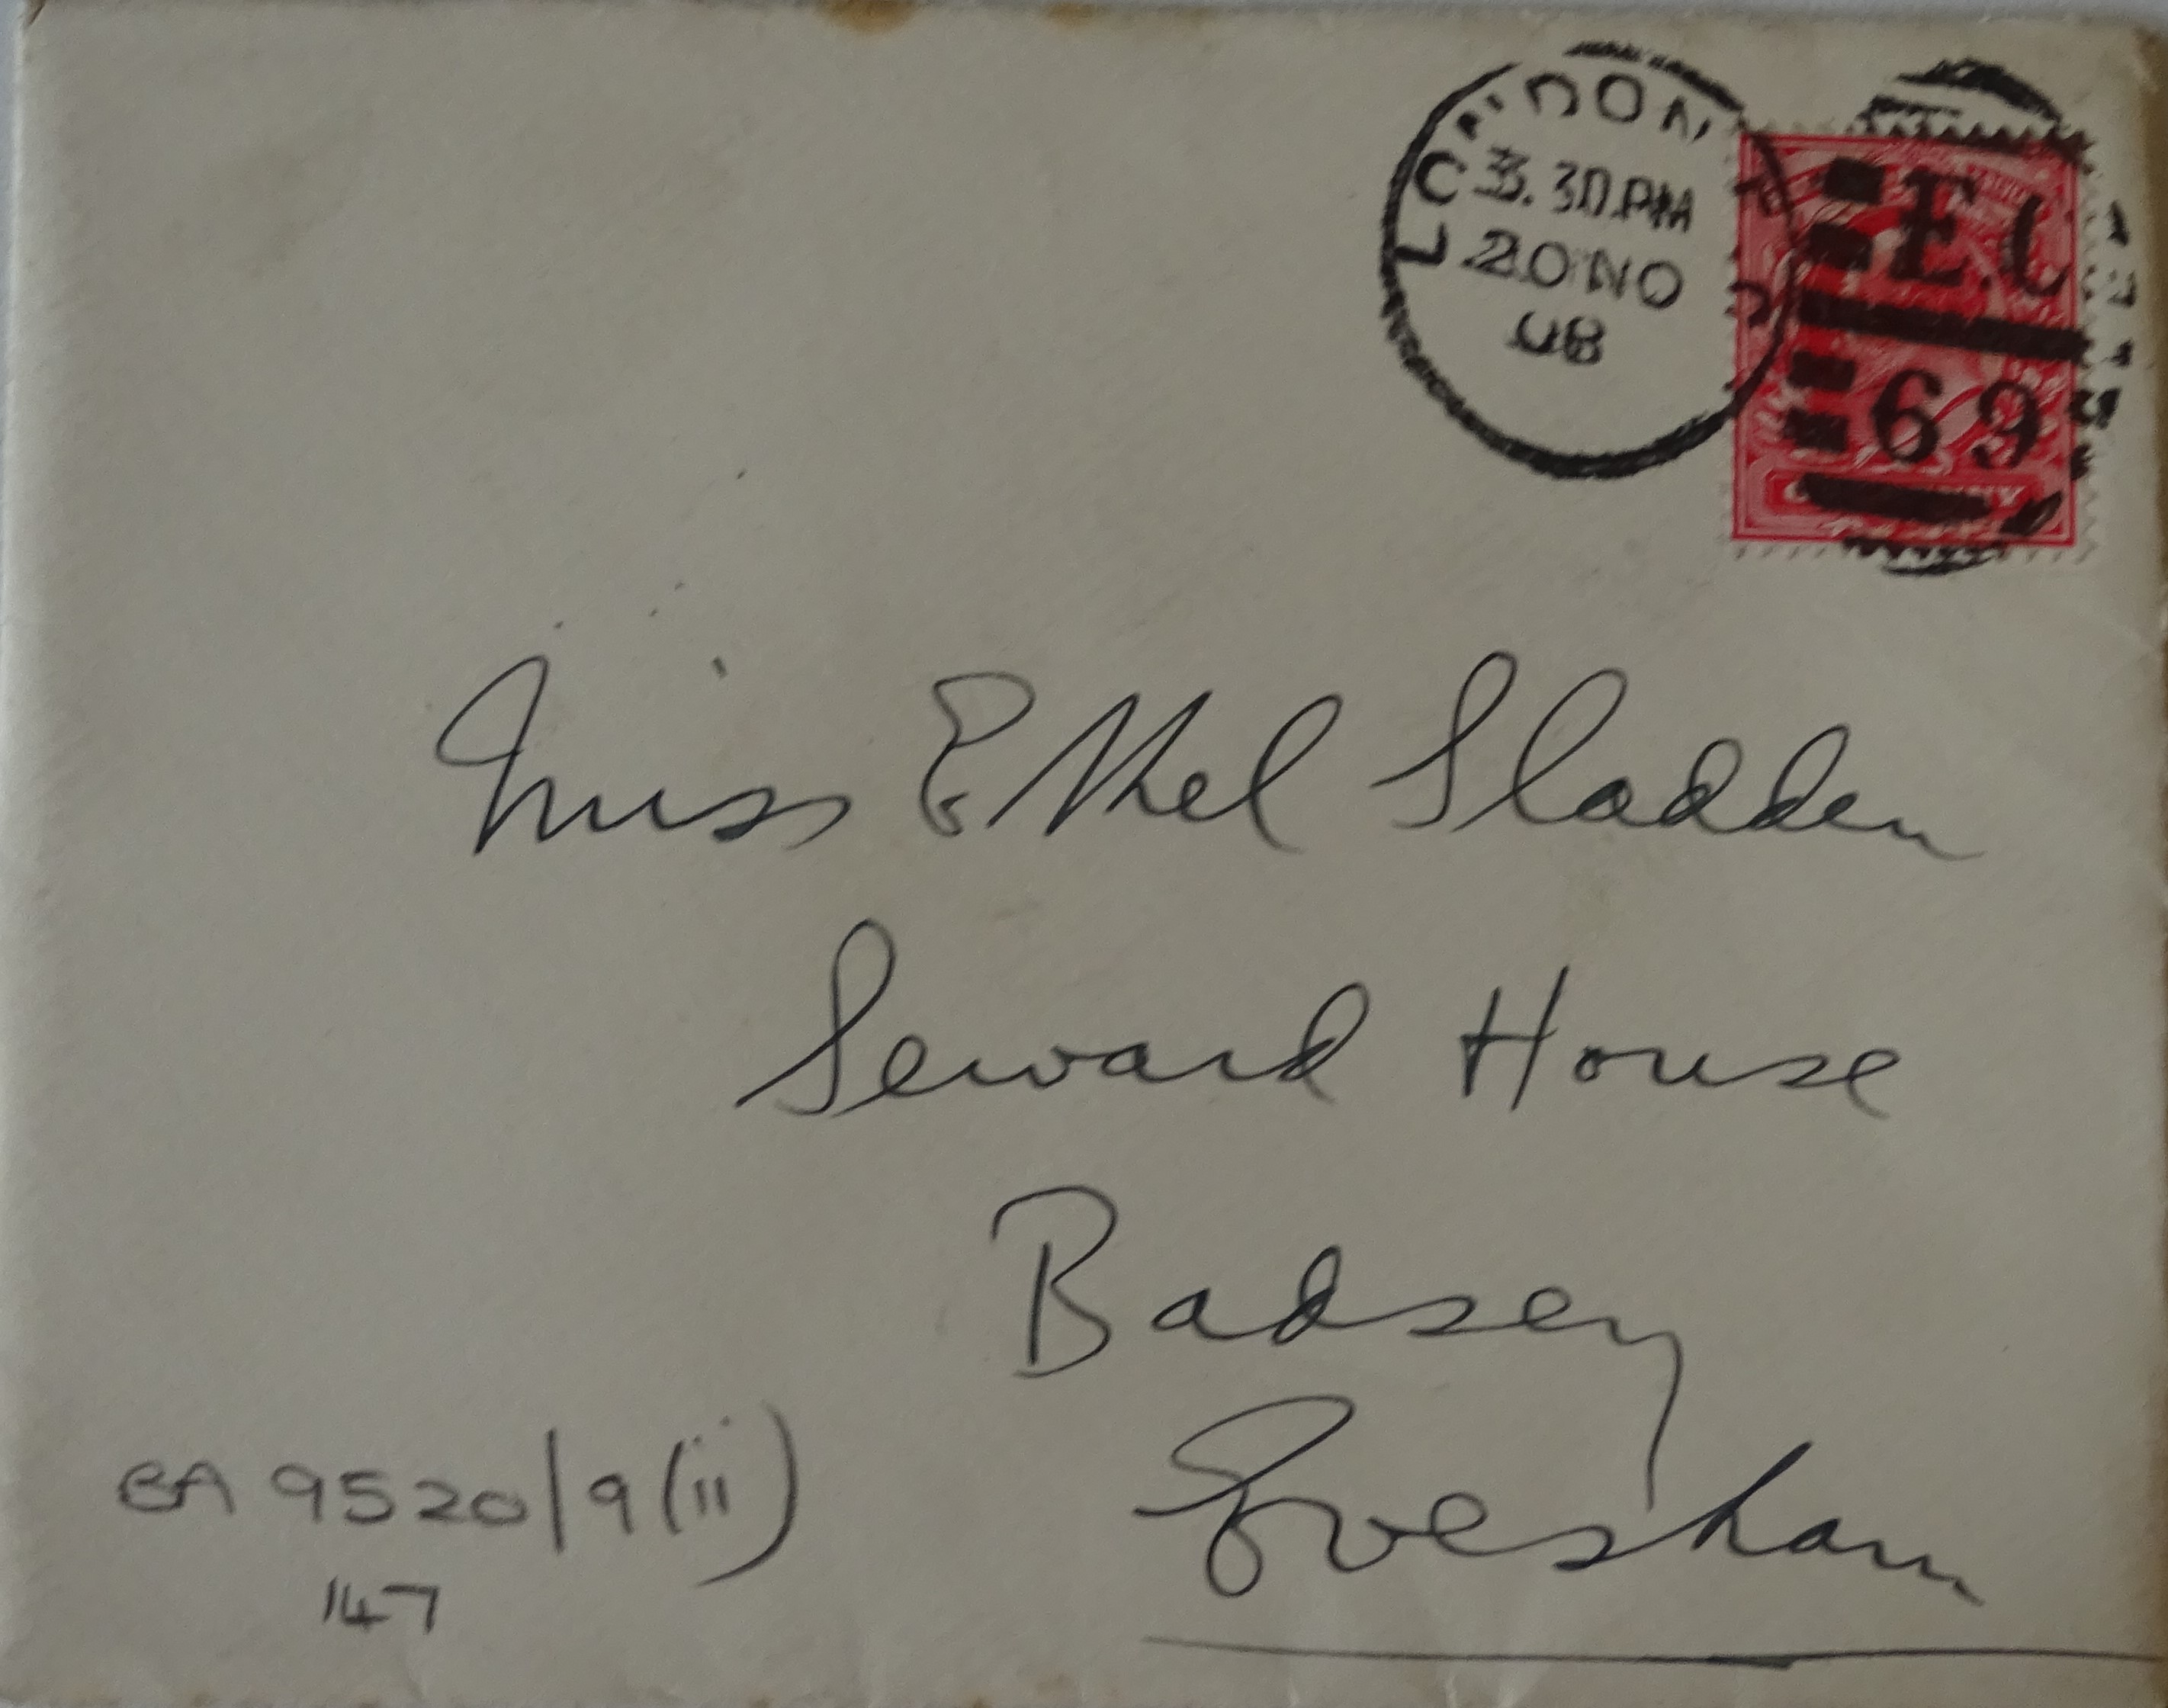 LONDON
3.30.PM
20 NO
08
E.C
69
Miss Ethel Sladden
Seward House
Badsey
Evesham
BA 9520/9(ii)
147